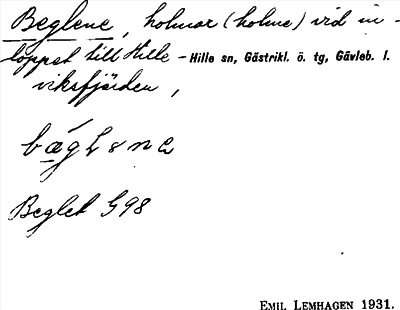 Beglene, holmar (holme) vid in-
loppet till Hille - Hille sn, Gästrikl. ö. tg, Gävleb. l.
viksfjärden,
Beglet G98
EMIL LEMHAGEN 1931.